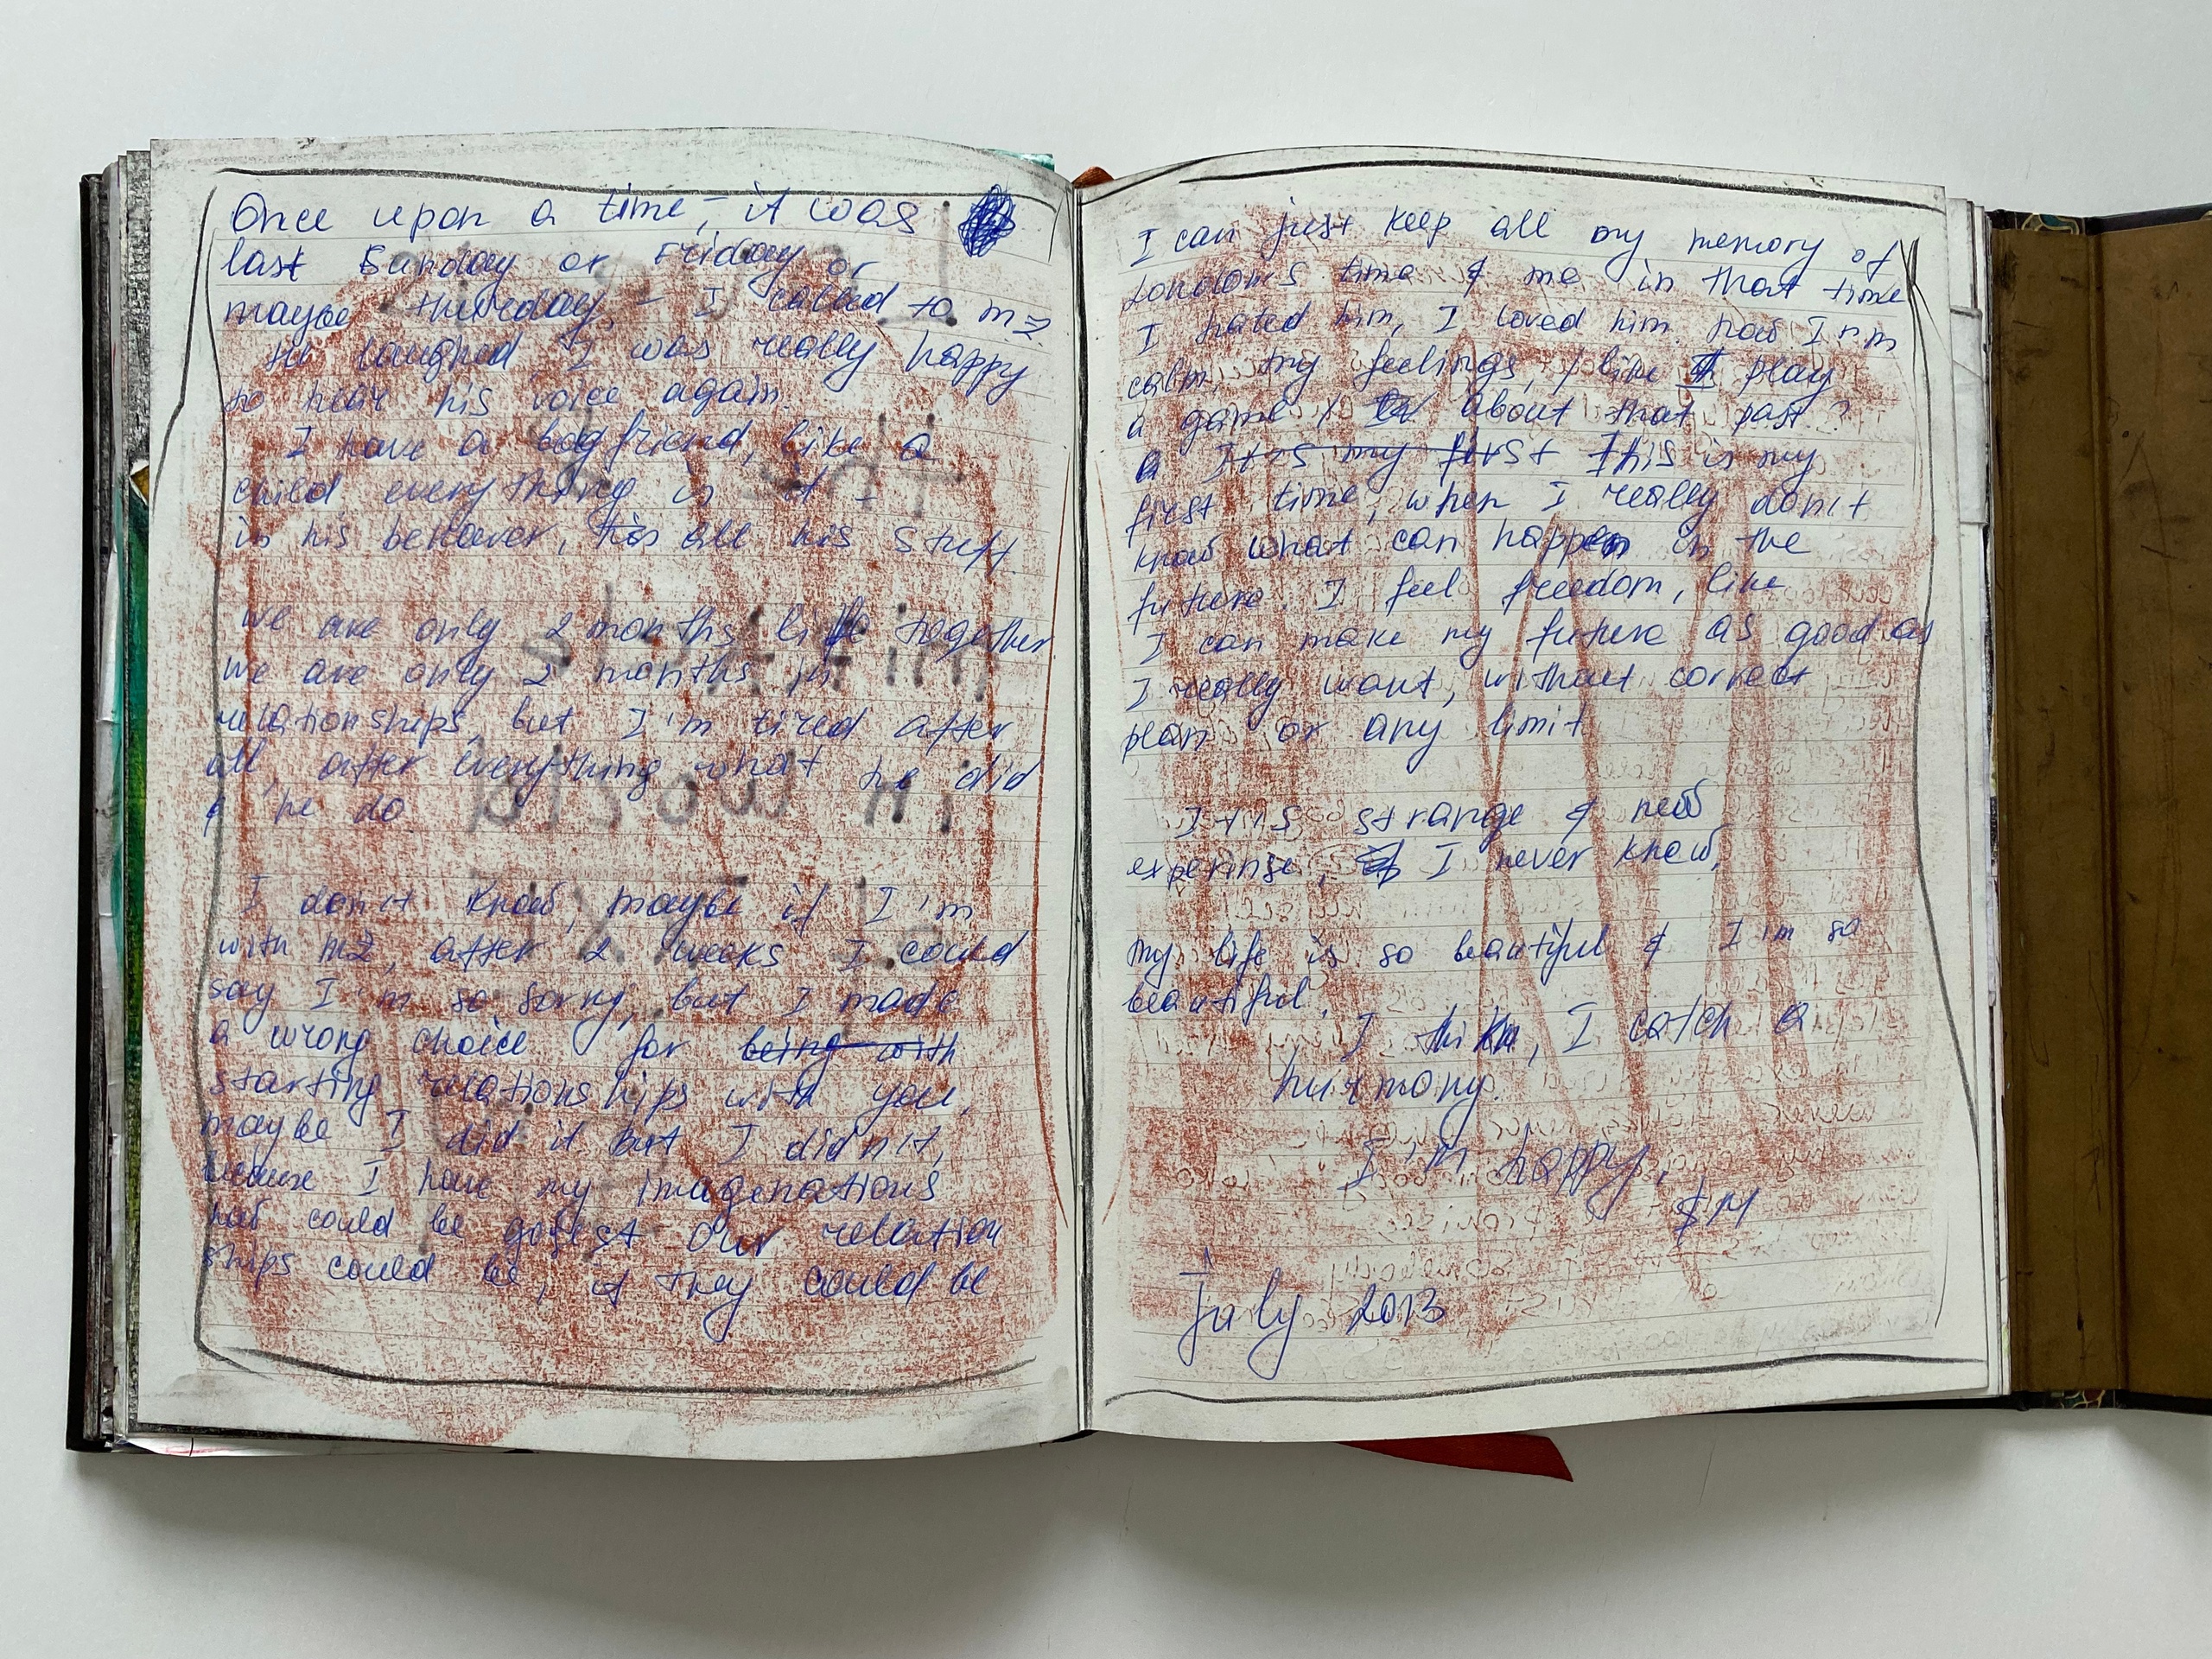 Once upon a time, it was
last Sunday or Friday or
maybe thuredday, - I called to mz.
He laughed, I was really happy
to hear his voice again.
I have a boyfriend, like a
child, everything is it -
in his behaver, in all his stuff.
we are only 2 months life together
we are only 2 months in
relationships, but I'm tired after
all, after everything what he did
& he do.
I don't know, maybe if I'm
with mz, after 2 weeks I could
say I'm so sorry, but I made
a wrong choice for being with
starting relationships with you,
maybe I did it but I didn't,
because I have my imagenations
how could be our relation
ships could be, if they could be
I can just keep all my memory of
London's time & me in that time
I hated him, I loved him. now I'm
calm my feelings, like I play
a game about that past?
a It's my first This is my
first time, when I really don't
know what can happen in the
future. I feel freedom, like
I can make my future as good as
I really want, without correct
plan or any limit
It's strange & new
experinse, I never knew,
my life is so beautiful & I'm so
beautiful,
I think, I catch a
hurmony.
I'm happy,
$M
July 2013